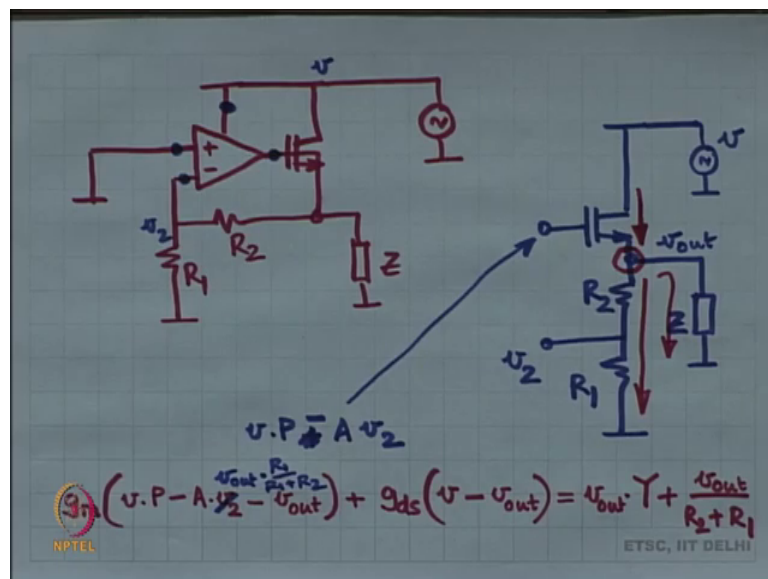 v
v
+
−
v₂
R₂
R₁
Z
v_out
R₂
Z
v₂
R₁
v.P − A v₂
v_out · R₁/(R₁+R₂)
g_m (v.P − A.v₂ − v_out) + g_ds (v − v_out) = v_out · Y + v_out/(R₂ + R₁)
NPTEL
ETSC, IIT DELHI